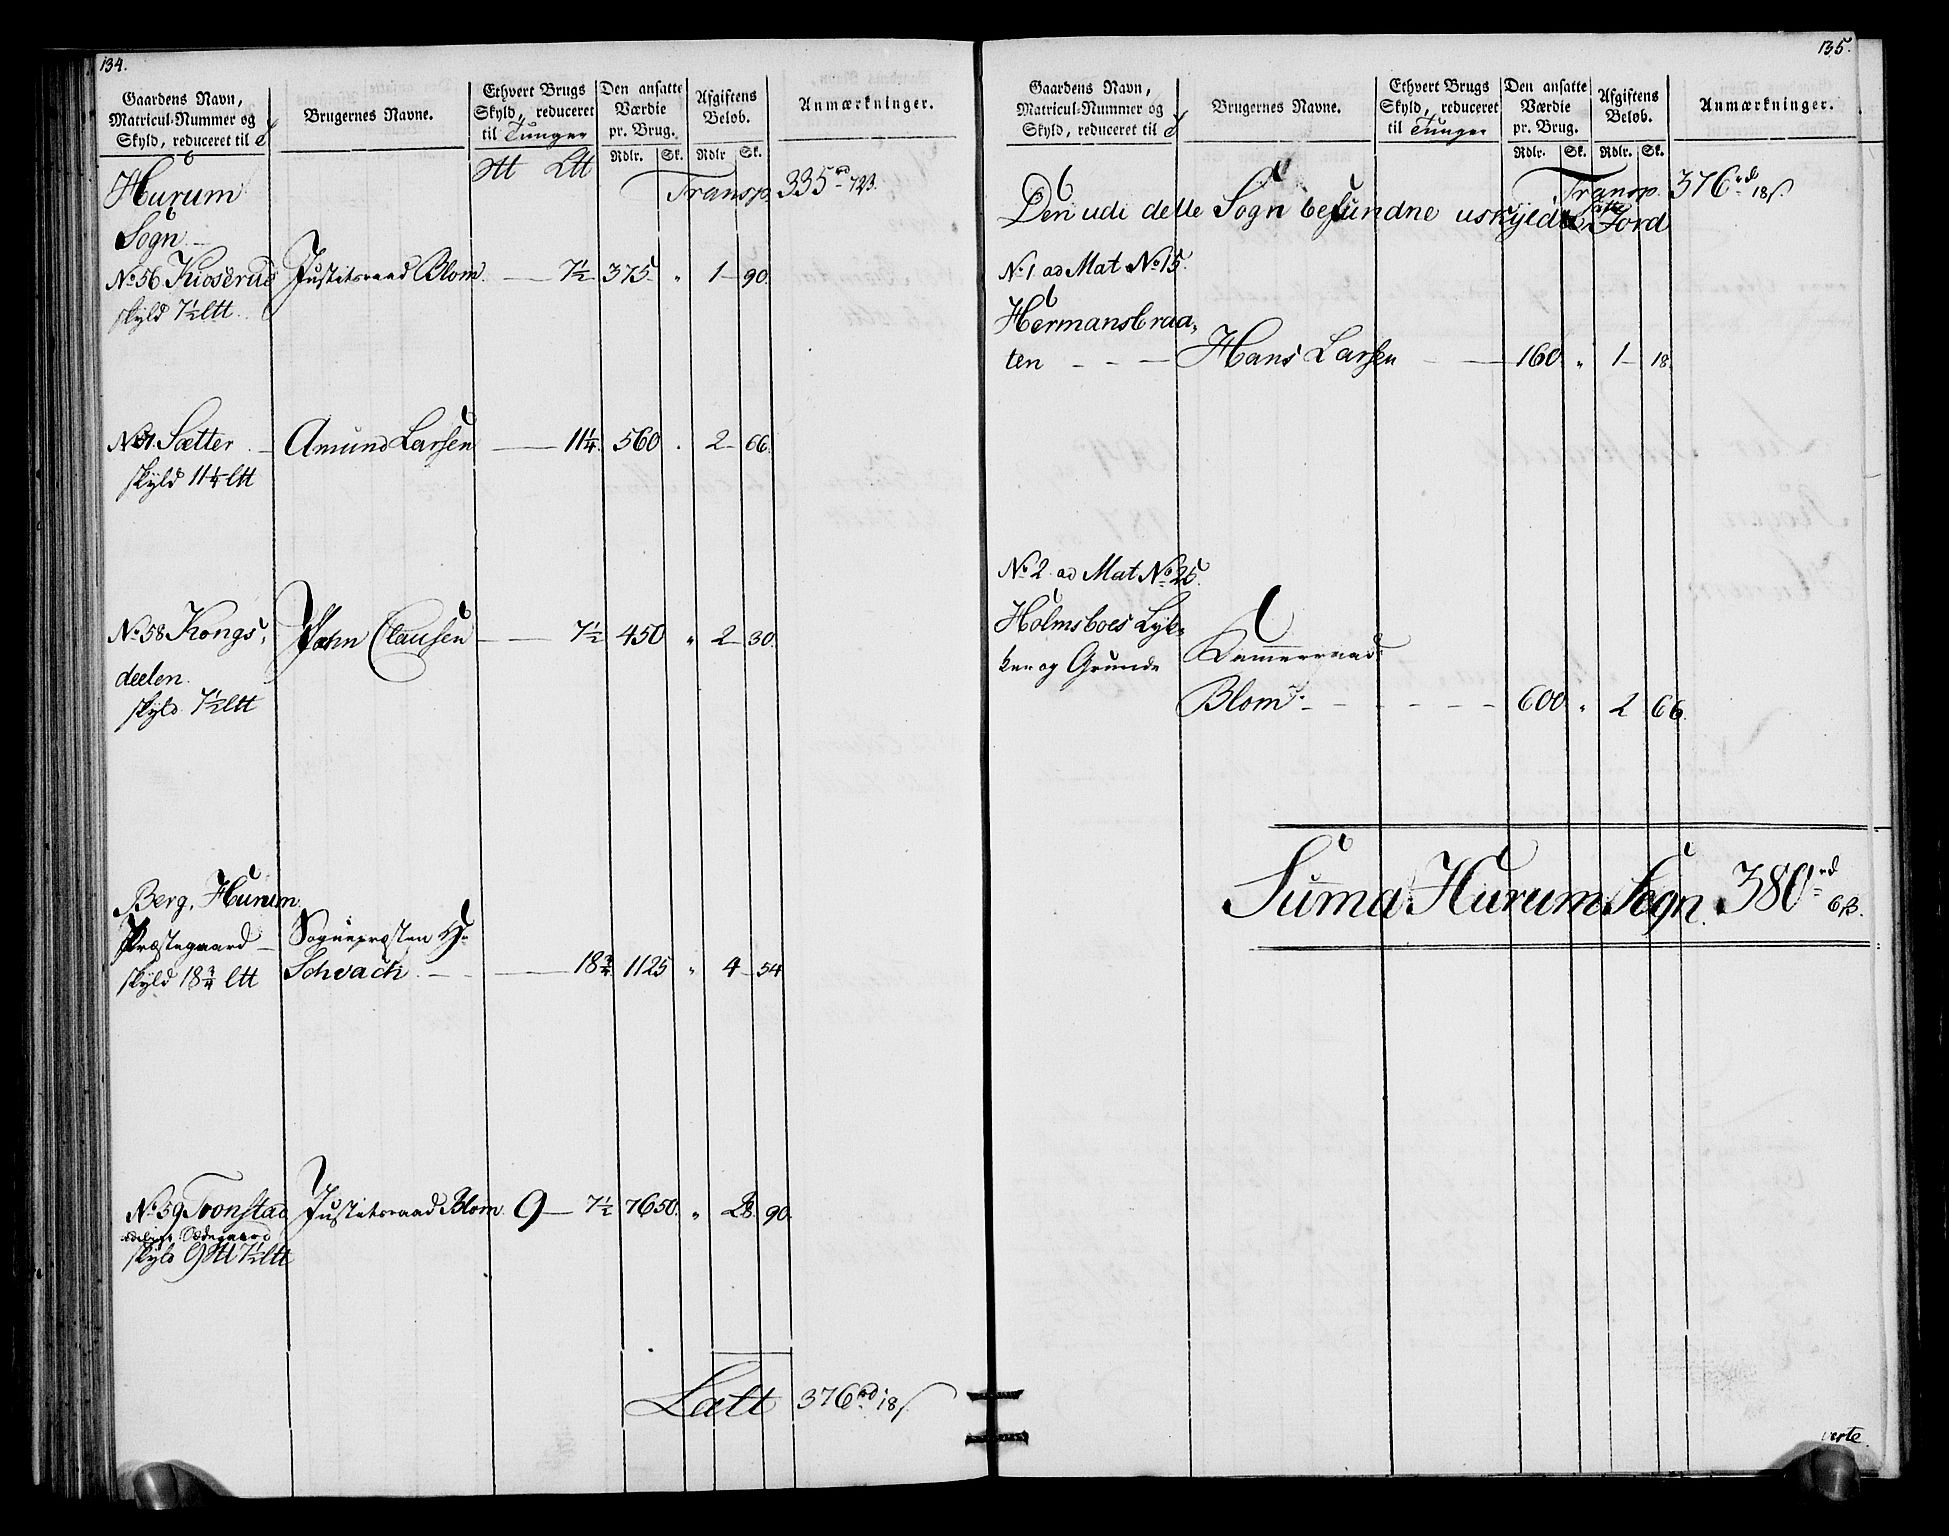 134.
Gaardens Navn, Matricul-Nummer og Skyld, reduceret til
Brugernes Navne.
Ethvert Brugs Skyld, reduceret til Tunger
Den ansatte Værdie pr. Brug.
Afgiftens Beløb.
Anmærkninger.
Rdlr. Sk. Rdlr Sk.
Hurum Htt Ltt Transp. 335 rd 72 3.
Sogn
No 56 Kioserud Justitsraad Blom. — 7½ 375 „ 1 — 90.
skyld 7½ Ltt.
No 57. Sætter — Amund Larsen — 11¼ 560 . 2 — 66.
skyld 11¼ Ltt
No 58 Kongs, John Clausen — 7½ 450 „ 2 — 30.
deelen.
skyld 7½ Ltt
Berg, Hurum
Præstegaard — Sognepræsten Hr
skyld 18¾ Ltt Schvach. — 18¾ 1125 „ 4 — 54
No 59 Tronstad Justitsraad Blom. 9 — 7½ 7650. „ 28. 90.
adeligt Sædegaard
skyld 9 Htt 7½ Ltt
Latt 376 rd 18 s.
135.
Gaardens Navn, Matricul-Nummer og Skyld, reduceret til
Brugernes Navne.
Ethvert Brugs Skyld, reduceret til Tunger
Den ansatte Værdie pr. Brug.
Afgiftens Beløb.
Anmærkninger.
Rdlr. Sk. Rdlr. Sk.
Transp. 376 rd 18 s.
Den udi dette Sogn befundne uskyldsatte Jord
No 1 ad Mat No 15.
Hermansbraa,
ten — — — Hans Larsen — — 160. „ 1 — 18.
No 2 ad Mat No 25.
Holmsboes Lyk,
ker og Grunde Kammerraad
Blom — — — — — — 600 „ 2 66.
Suma Hurum Sogn. 380 rd 6 s.
verte.